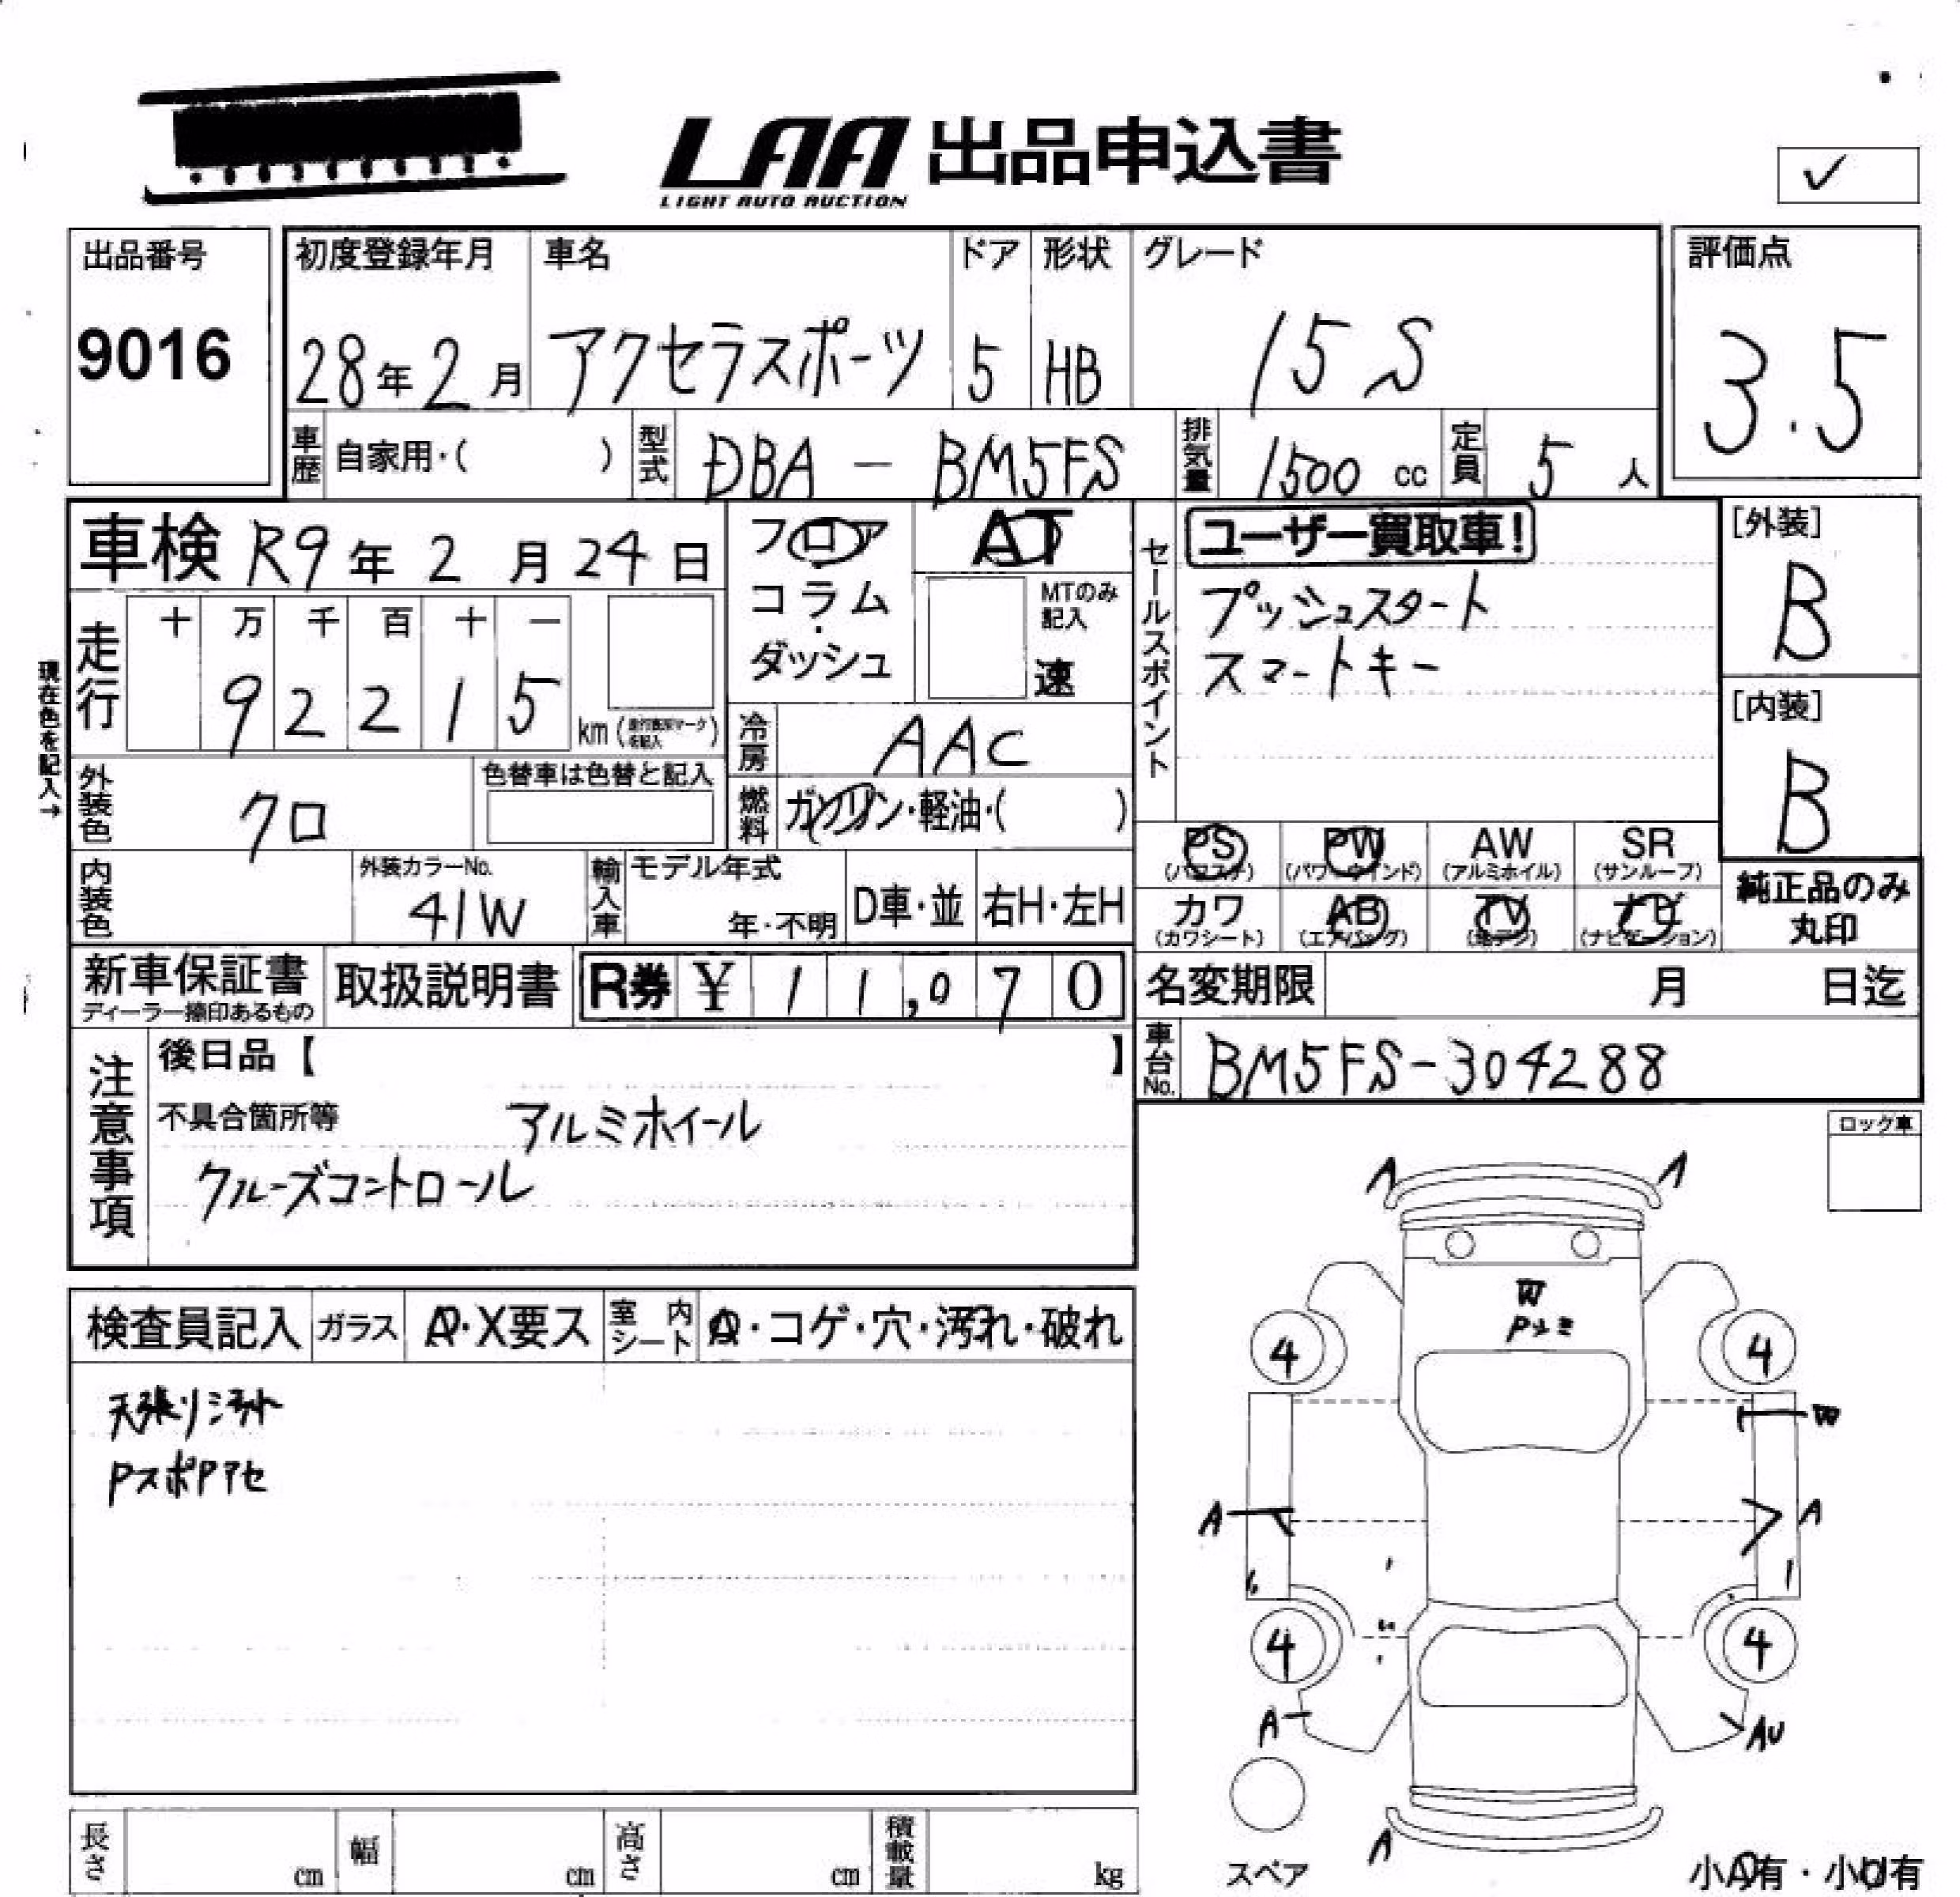 LAA 出品申込書
LIGHT AUTO AUCTION
✓
出品番号
9016
初度登録年月 車名 ドア 形状 グレード
28年2月 アクセラスポーツ 5 HB 15S
評価点
3.5
車歴 自家用・( ) 型式 DBA - BM5FS 排気量 1500 cc 定員 5 人
車検 R9年2月24日
フロア
コラム
・
ダッシュ
AT
MTのみ
記入
速
セールスポイント
ユーザー買取車!
プッシュスタート
スマートキー
[外装]
B
[内装]
B
現在色を記入→
走行
十 万 千 百 十 一
9 2 2 1 5 km
冷房 AAC
外装色 クロ
色替車は色替と記入
燃料 ガソリン・軽油・( )
PS PW AW SR
(パワステ) (パワーウインド) (アルミホイル) (サンルーフ)
カワ AB TV ナビ
(カワシート) (エアバッグ) (ナビゲーション)
純正品のみ
丸印
内装色
外装カラーNo.
41W
輸入車
モデル年式
年・不明
D車・並 右H・左H
新車保証書
ディーラー捺印あるもの
取扱説明書
R券 ¥ 11,070
名変期限 月 日迄
車台No. BM5FS-304288
注意事項
後日品【 】
不具合箇所等 アルミホイール
クルーズコントロール
ロック車
検査員記入 ガラス A・X要ス 室内シート A・コゲ・穴・汚れ・破れ
天張リ
A A
W
4 4
W
A A
4 4
A AU
A
スペア
小A有・小U有
長さ cm 幅 cm 高さ cm 積載量 kg